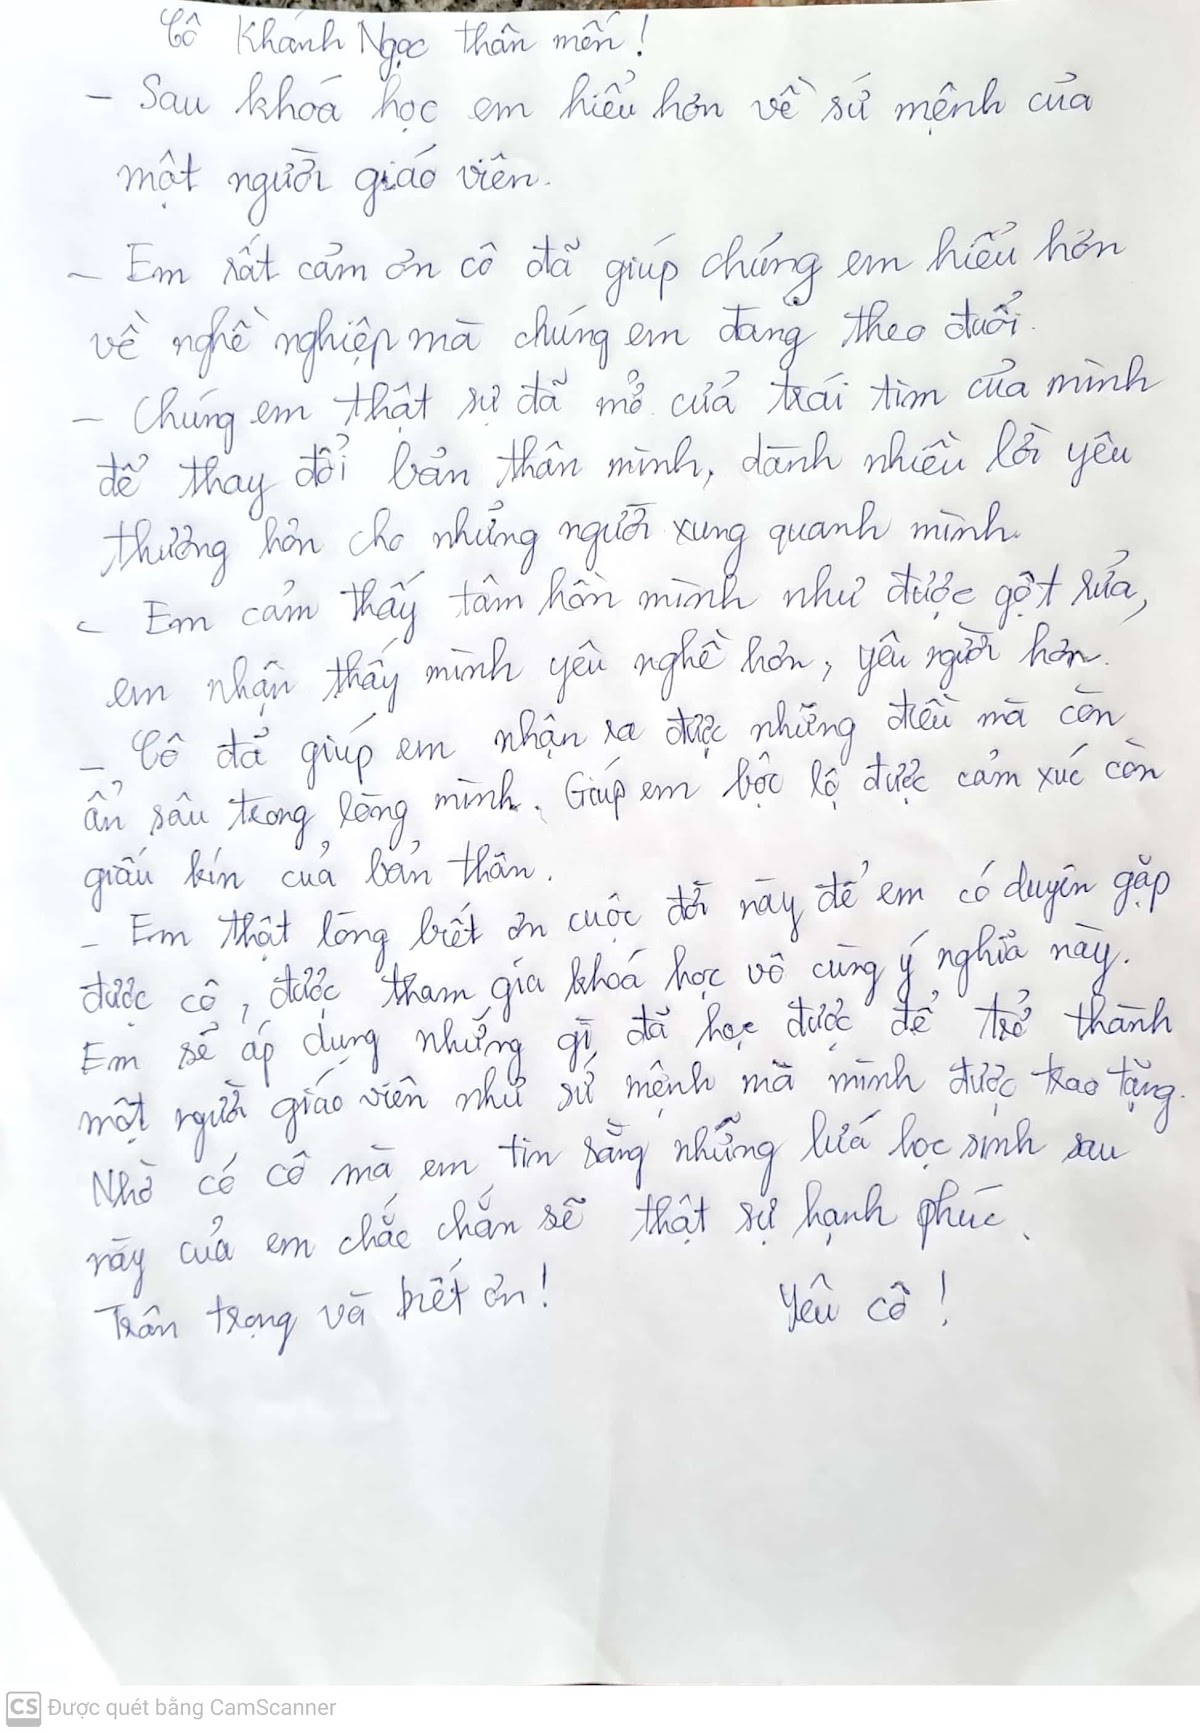 Cô Khánh Ngọc thân mến!
- Sau khoá học em hiểu hơn về sứ mệnh của
một người giáo viên.
- Em rất cảm ơn cô đã giúp chúng em hiểu hơn
về nghề nghiệp mà chúng em đang theo đuổi.
- Chúng em thật sự đã mở cửa trái tim của mình
để thay đổi bản thân mình, dành nhiều lời yêu
thương hơn cho những người xung quanh mình.
- Em cảm thấy tâm hồn mình như được gột rửa,
em nhận thấy mình yêu nghề hơn, yêu người hơn.
- Cô đã giúp em nhận ra được những điều mà còn
ẩn sâu trong lòng mình. Giúp em bộc lộ được cảm xúc còn
giấu kín của bản thân.
- Em thật lòng biết ơn cuộc đời này để em có duyên gặp
được cô, được tham gia khoá học vô cùng ý nghĩa này.
Em sẽ áp dụng những gì đã học được để trở thành
một người giáo viên như sứ mệnh mà mình được trao tặng.
Nhờ có cô mà em tin rằng những lứa học sinh sau
này của em chắc chắn sẽ thật sự hạnh phúc.
Trân trọng và biết ơn! Yêu cô!
CS Được quét bằng CamScanner